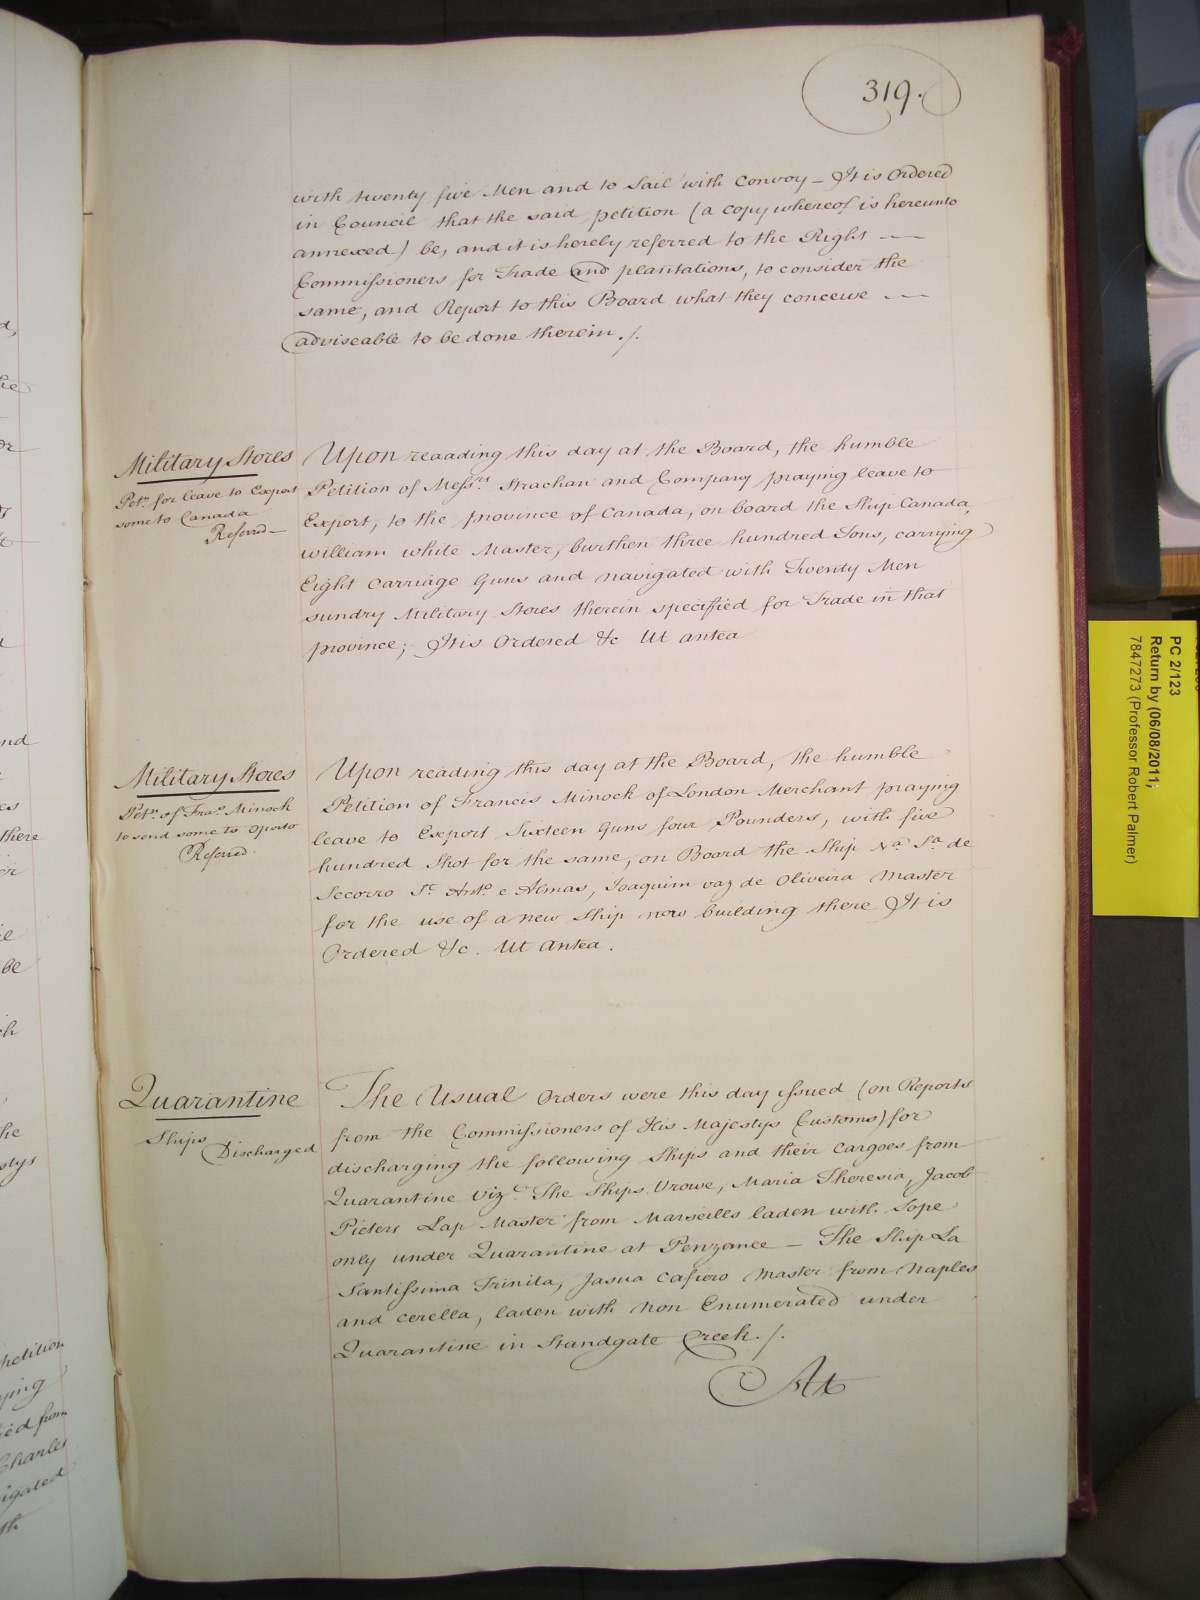 319.
with twenty five Men and to Sail with Convoy – It is Ordered
in Council that the said petition (a copy whereof is hereunto
annexed) be, and it is hereby referred to the Right —
Commissioners for Trade and plantations, to consider the
same, and Report to this Board what they conceive —
adviseable to be done therein ./.
Military Stores
Petn. for leave to Export
some to Canada
Referred —
Upon reaading this day at the Board, the humble
Petition of Messrs Strachan and Company praying leave to
Export, to the province of Canada, on board the Ship Canada,
William white Master, burthen three hundred Tons, carrying
Eight Carriage Guns and navigated with Twenty Men
sundry Military Stores therein specified for Trade in that
province; It is Ordered &c Ut antea
Military Stores
Petn. of Fras. Minock
to send some to Oporto
Referred.
Upon reading this day at the Board, the humble
Petition of Francis Minock of London Merchant praying
leave to Export Sixteen Guns four Pounders, with five
hundred Shot for the same, on Board the Ship Na. Sa. de
Secorro St. Anto. e Almas, Joaquim vaz de Oliveira Master
for the use of a new Ship now building there It is
Ordered &c. Ut Antea.
Quarantine
Ships
Discharged
The Usual Orders were this day issued (on Reports
from the Commissioners of His Majestys Customs) for
discharging the following Ships and their Cargoes from
Quarantine Vizt. The Ships Vrowe, Maria Theresia, Jacob
Pieters Lap Master from Marseilles laden with Sope
only under Quarantine at Penzance – The Ship La
Santissima Trinita, Jasua Cafiero Master from Naples
and Cerella, laden with Non Enumerated under
Quarantine in Standgate Creek. /.
At
PC 2/123
Return by (06/08/2011;
7847273 (Professor Robert Palmer)